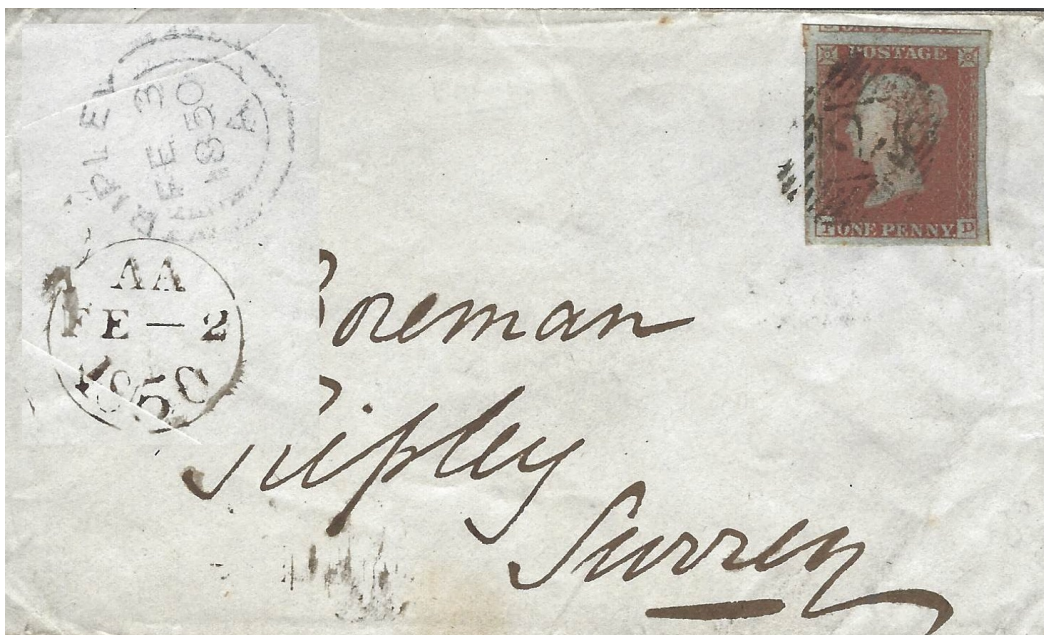 RIPLEY
FE 3
1850
A
AA
FE — 2
1850
POSTAGE
ONE PENNY.
T D
Boreman
Ripley
Surrey